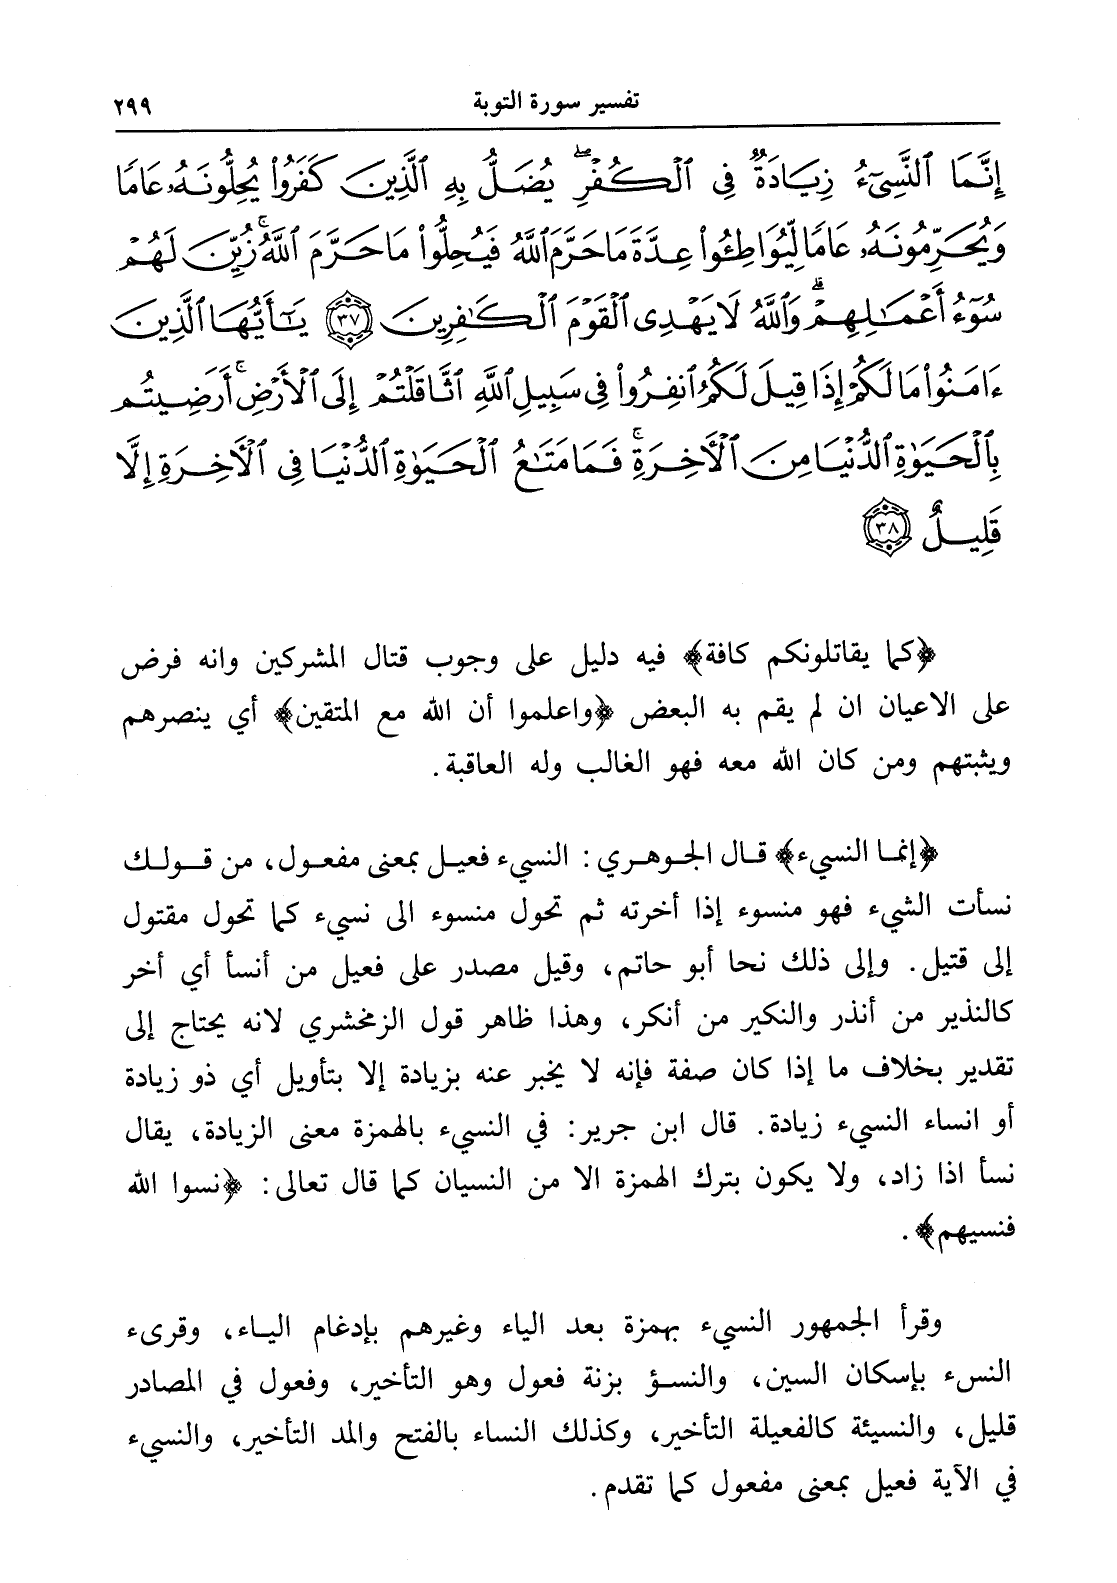 تفسير سورة التوبة ٢٩٩
إِنَّمَا ٱلنَّسِىٓءُ زِيَادَةٌ فِى ٱلْكُفْرِ ۖ يُضَلُّ بِهِ ٱلَّذِينَ كَفَرُوا۟ يُحِلُّونَهُۥ عَامًا
وَيُحَرِّمُونَهُۥ عَامًا لِّيُوَاطِـُٔوا۟ عِدَّةَ مَا حَرَّمَ ٱللَّهُ فَيُحِلُّوا۟ مَا حَرَّمَ ٱللَّهُ ۚ زُيِّنَ لَهُمْ
سُوٓءُ أَعْمَـٰلِهِمْ ۗ وَٱللَّهُ لَا يَهْدِى ٱلْقَوْمَ ٱلْكَـٰفِرِينَ ٣٧ يَـٰٓأَيُّهَا ٱلَّذِينَ
ءَامَنُوا۟ مَا لَكُمْ إِذَا قِيلَ لَكُمُ ٱنفِرُوا۟ فِى سَبِيلِ ٱللَّهِ ٱثَّاقَلْتُمْ إِلَى ٱلْأَرْضِ ۚ أَرَضِيتُم
بِٱلْحَيَوٰةِ ٱلدُّنْيَا مِنَ ٱلْـَٔاخِرَةِ ۚ فَمَا مَتَـٰعُ ٱلْحَيَوٰةِ ٱلدُّنْيَا فِى ٱلْـَٔاخِرَةِ إِلَّا
قَلِيلٌ ٣٨
﴿كما يقاتلونكم كافة﴾ فيه دليل على وجوب قتال المشركين وانه فرض
على الاعيان ان لم يقم به البعض ﴿واعلموا أن الله مع المتقين﴾ أي ينصرهم
ويثبتهم ومن كان الله معه فهو الغالب وله العاقبة.
﴿إنما النسيء﴾ قال الجوهري: النسيء فعيل بمعنى مفعول، من قولك
نسأت الشيء فهو منسوء إذا أخرته ثم تحول منسوء الى نسيء كما تحول مقتول
إلى قتيل. وإلى ذلك نحا أبو حاتم، وقيل مصدر على فعيل من أنسأ أي أخر
كالنذير من أنذر والنكير من أنكر، وهذا ظاهر قول الزمخشري لانه يحتاج إلى
تقدير بخلاف ما إذا كان صفة فإنه لا يخبر عنه بزيادة إلا بتأويل أي ذو زيادة
أو انساء النسيء زيادة. قال ابن جرير: في النسيء بالهمزة معنى الزيادة، يقال
نسأ اذا زاد، ولا يكون بترك الهمزة الا من النسيان كما قال تعالى: ﴿نسوا الله
فنسيهم﴾.
وقرأ الجمهور النسيء بهمزة بعد الياء وغيرهم بإدغام الياء، وقرىء
النسء بإسكان السين، والنسؤ بزنة فعول وهو التأخير، وفعول في المصادر
قليل، والنسيئة كالفعيلة التأخير، وكذلك النساء بالفتح والمد التأخير، والنسيء
في الآية فعيل بمعنى مفعول كما تقدم.